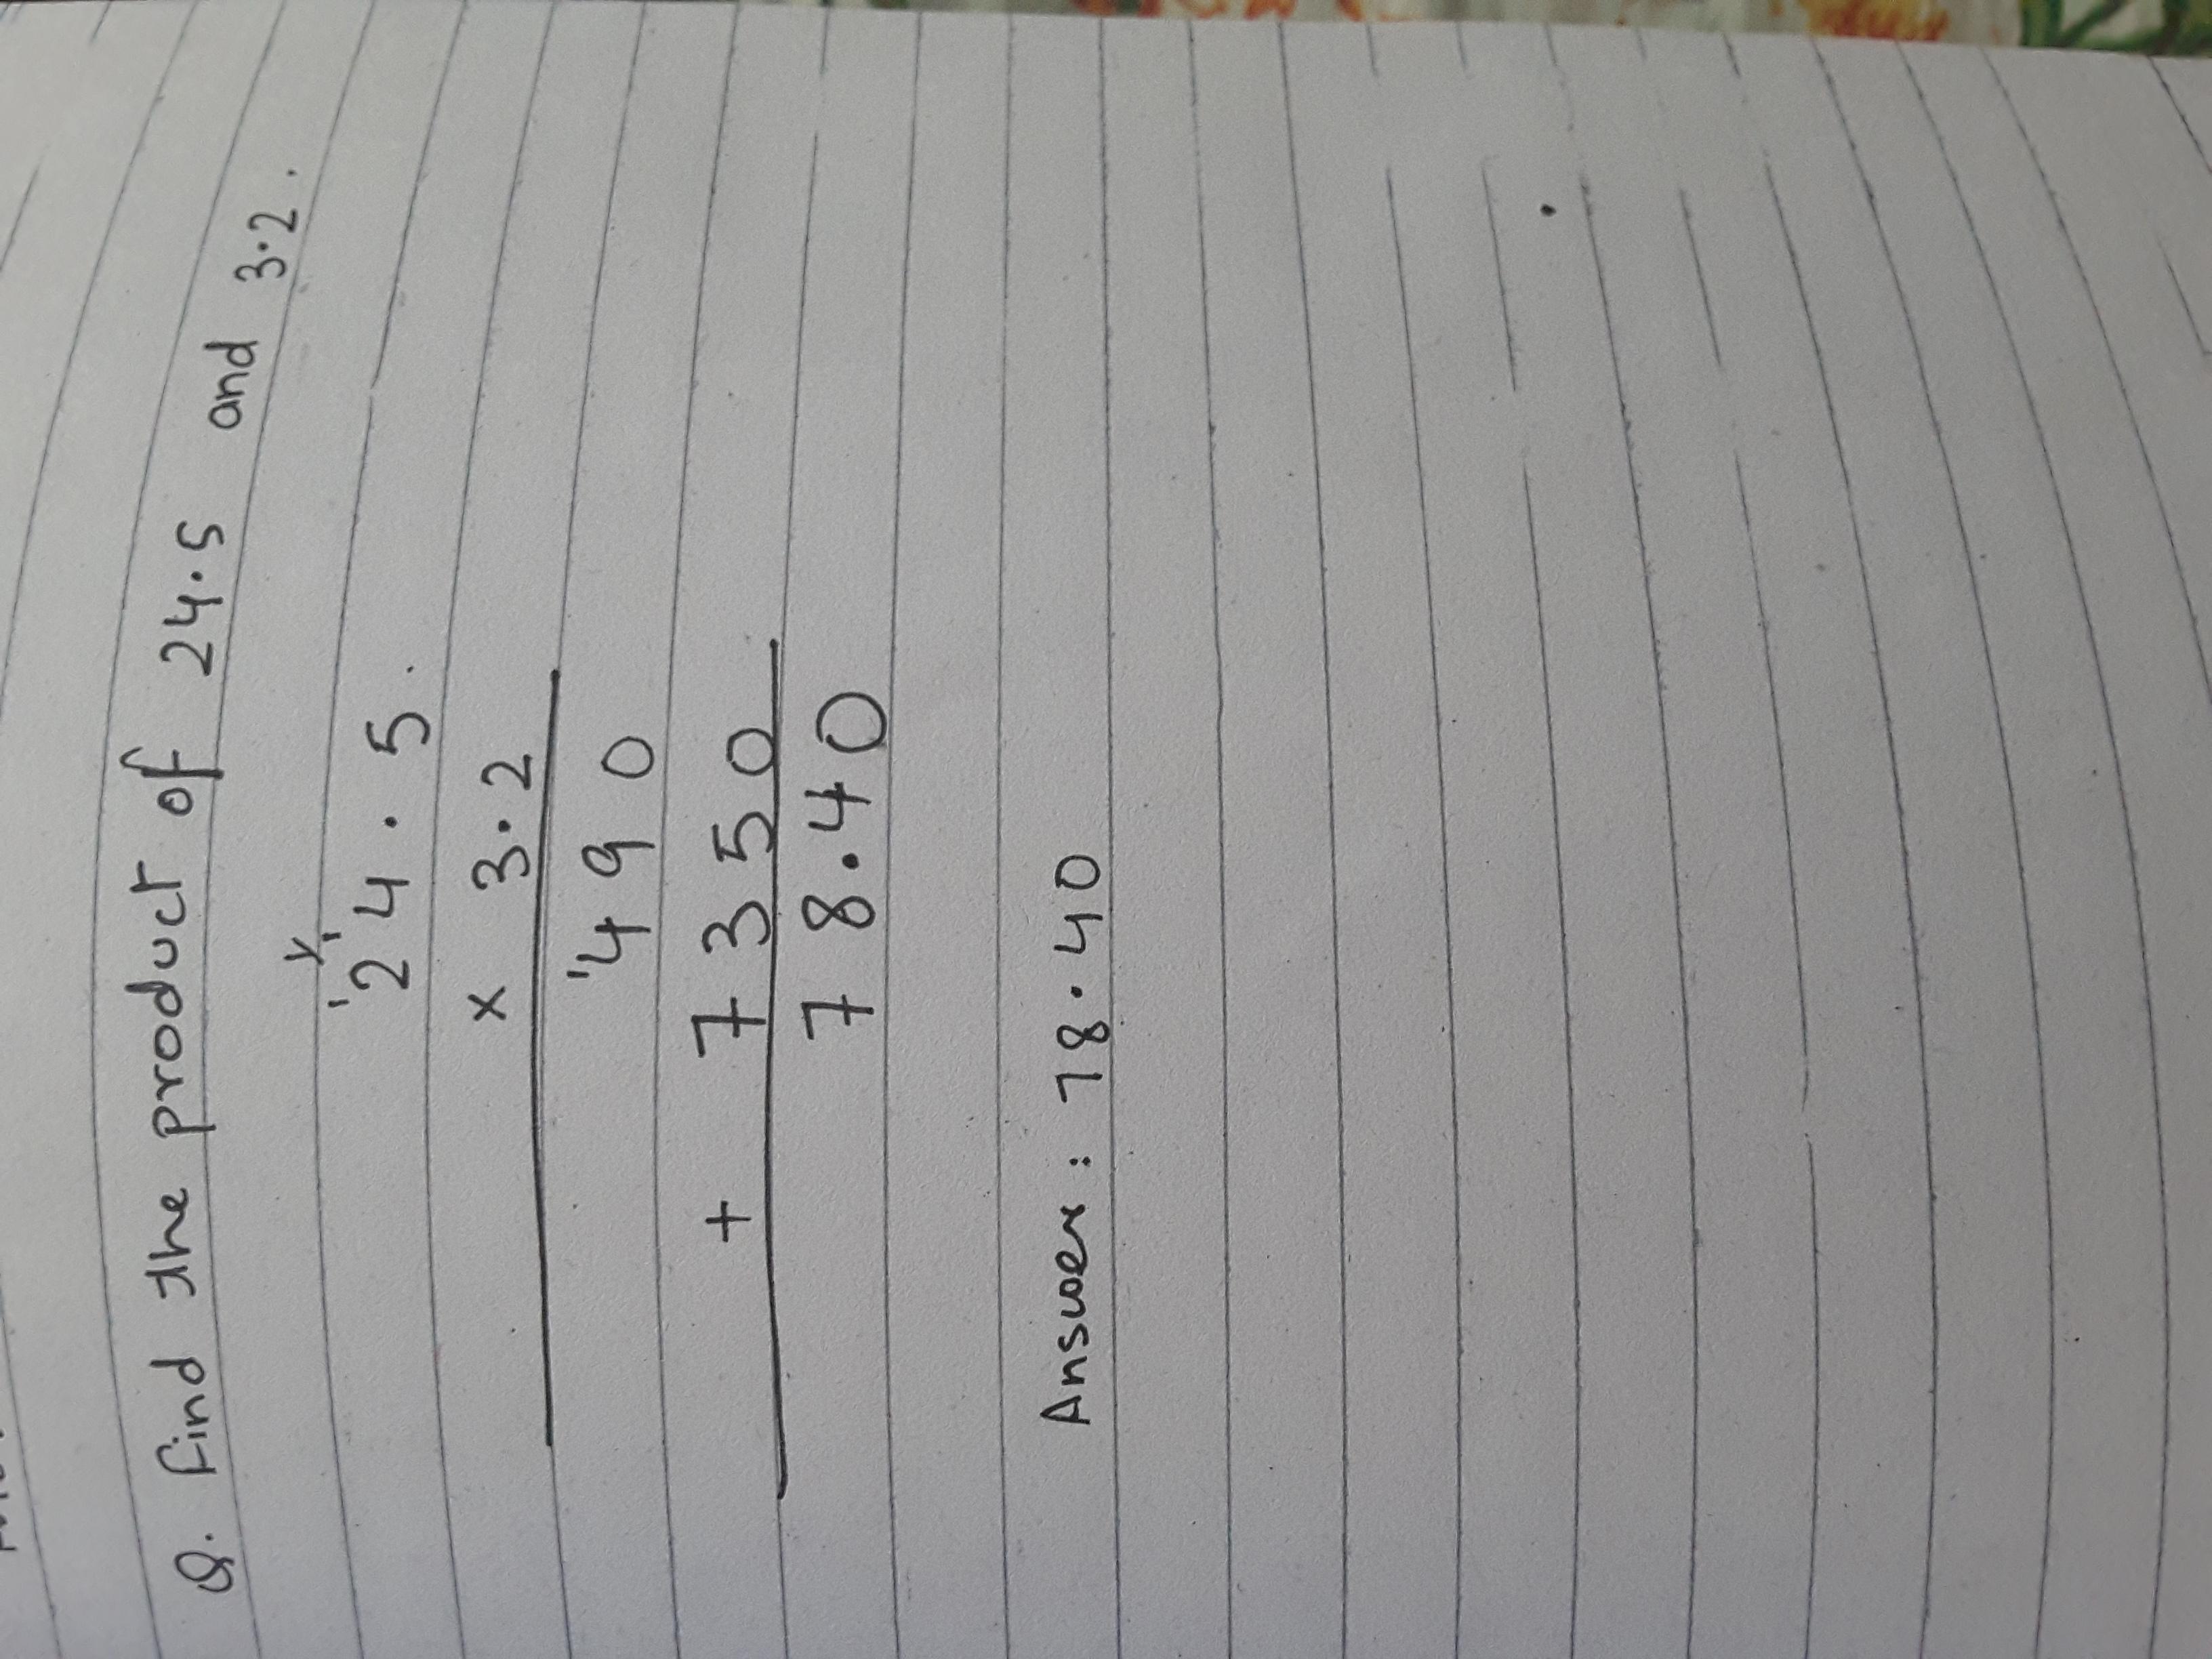 Q. Find the product of 24.5 and 3.2.
1 1
24.5.
x 3.2
1
490
+ 7350
78.40
Answer : 78.40